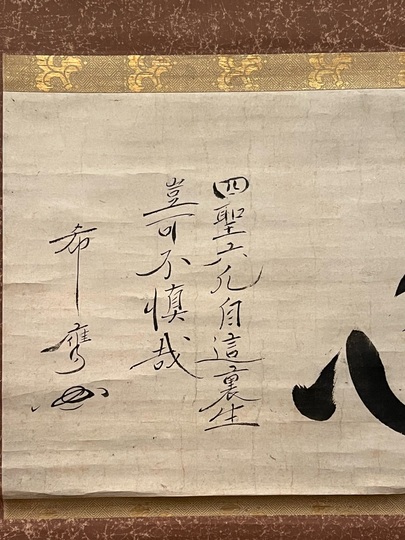 四聖六凡自這裏生
豈可不慎哉
希膺